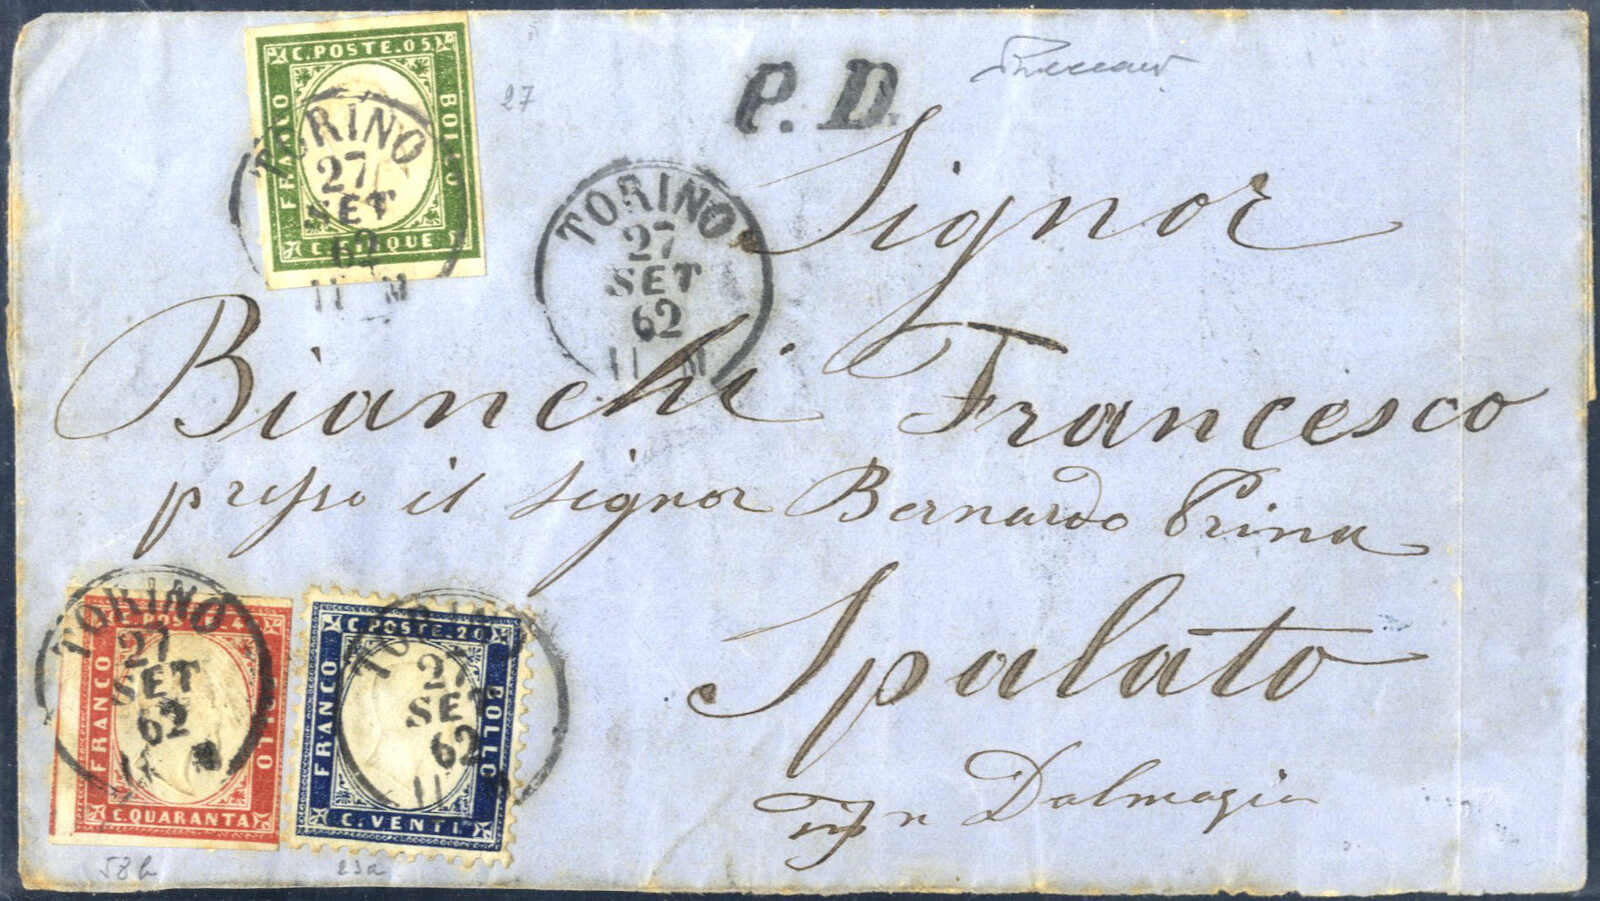 C. POSTE. 05
FRANCO
BOLLO
C. CINQUE 5
TORINO
27
SET
62
11 M
27
P. D.
TORINO
27
SET
62
11 M
Signor
Bianchi Francesco
presso il signor Bernardo Prina
Spalato
in Dalmazia
C. POSTE. 4
FRANCO
BOLLO
C. QUARANTA
TORINO
27
SET
62
C. POSTE. 20
FRANCO
BOLLO
C. VENTI.
TORINO
27
SET
62
11
58b
23a